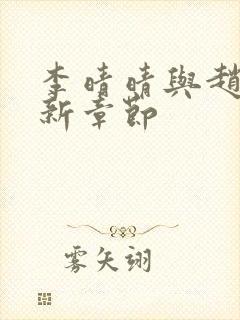 李晴晴與趙
新章節
雾矢翊